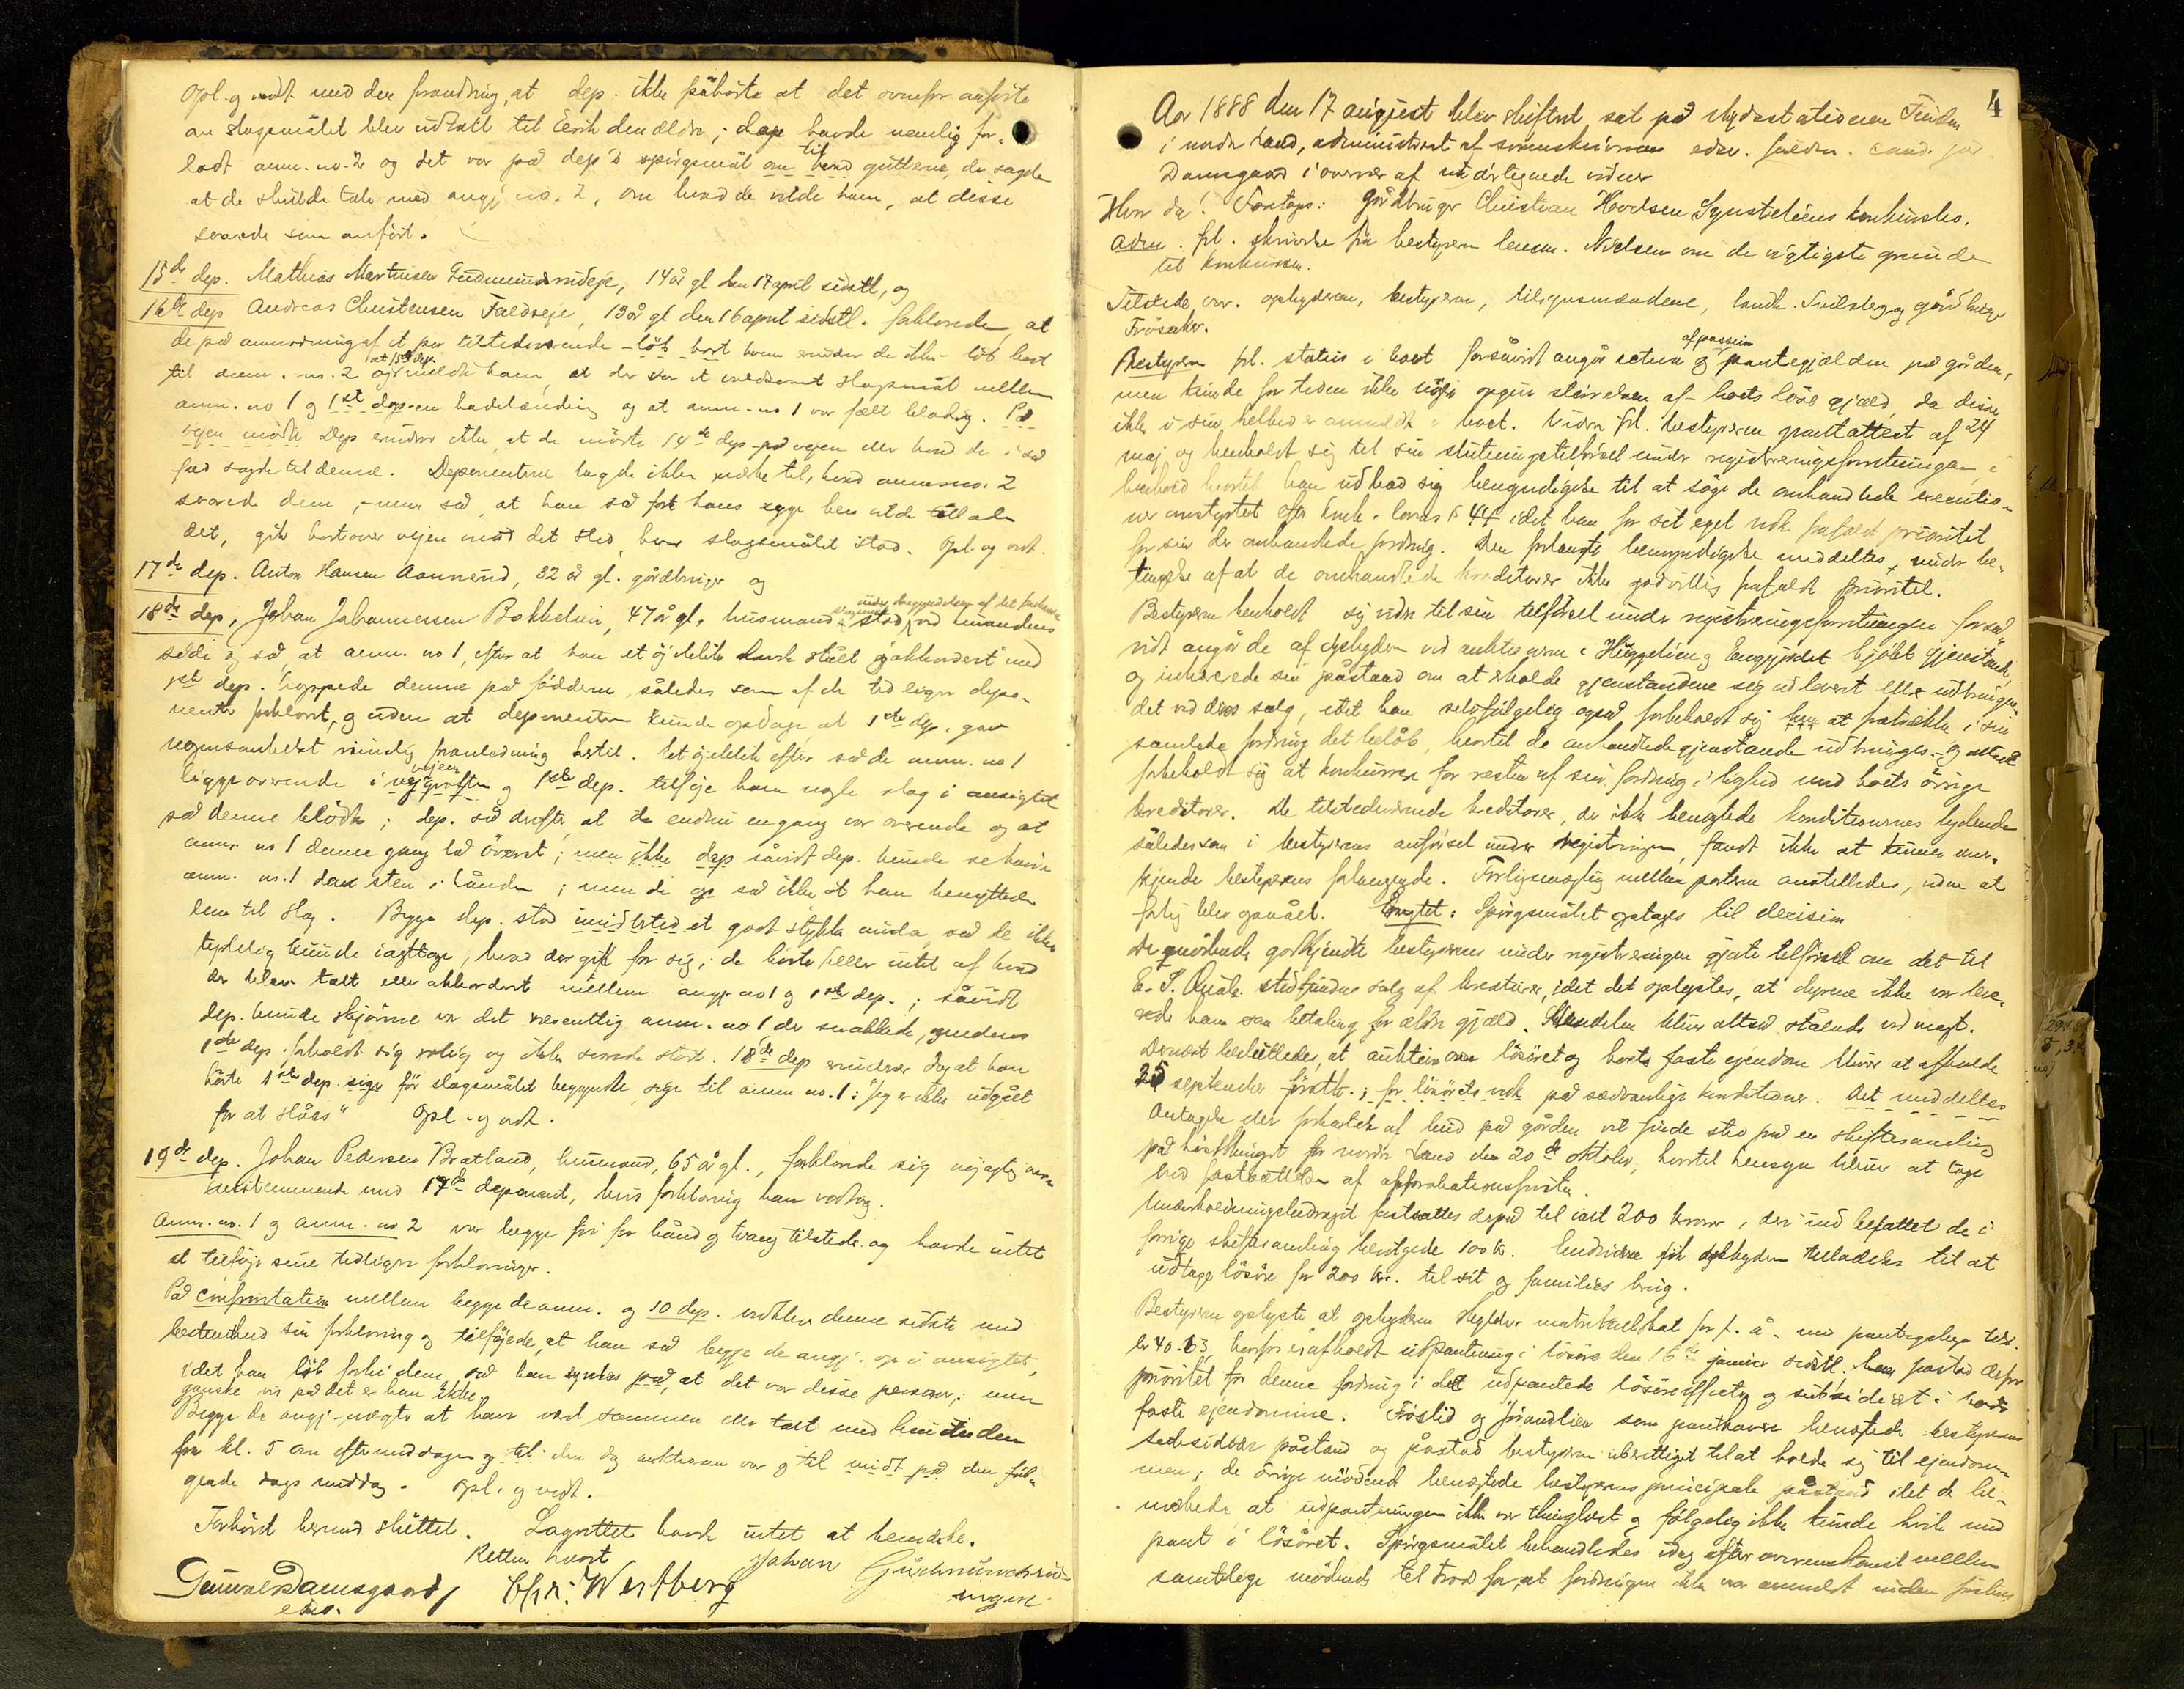 Opl. og vedt. med den forandring, at dep. ikke påhörte at det ovenfor anförte
om slagsmålet blev udtalt til Eerik den ældre; dep havde nemlig for-
ladt anm. no. 2 og det var på dep's spörgsmål om til hvad gutterne, de sagde
at de skulde tale med angj. no. 2, om hvad de vilde ham, at disse
svarede som anfört.
15de dep. Mathias Martinsen Gudmundsrudeje, 14 år gl den 17 april sidstl, og
16de dep Andreas Christensen Faldseje, 13 år gl den 16 april sidstl. forklarede, at
de på anmodning af et par tilstedeværende - löb bort hvem erindrer de ikke - löb bort
til anm. no. 2 og at 15de dep. meldte ham, at der var et voldsomt slagsmål mellem
anm. no 1 og 1ste dep. og at anm. no 1 var fælt blodig. På
vejen mödte Dep erindrer ikke, at de mödte 14de dep. på vejen eller hvad de i så
fald sagde til denne. Deponenterne lagde ikke mærke til, hvad anm. no. 2
svarede dem, men så, at han så fort hans syge ben vilde tillade
det, gik bortover vejen mod det sted, hvor slagsmålet stod. Opl. og vedt.
17de dep. Anton Hansen Aannerud, 32 år gl. gårdbruger og
18de dep, Johan Johannessen Bakkelien, 47 år gl. husmand, stod under begyndelsen af det slagsmål ved mandens
side og så, at anm. no 1, efter at han et öjeblik havde stået og "akkorderet" med
1ste dep. hoppede denne på födderne, således som af de tidligere depo-
nenter forklaret, og uden at deponenterne kunde opdage at 1ste dep. gav
nogensomhelst rimelig foranledning hertil. Et öjeblik efter så de anm. no 1
ligge overende i vejgröften vejen og 1ste dep. tilföje ham nogle slag i ansigtet
så denne blödte; dep. så derefter, at de endnu engang var overende og at
anm. no 1 denne gang lå överst; men ikke dep såvidt dep. kunde se havde
anm. no. 1 da en sten i hånden; men de så ikke at han benyttede
den til slag. Begge dep. stod imidlertid et godt stykke unda, så de ikke
tydelig kunde iagttage, hvad der gik for sig; de hörte heller intet af hvad
der blev talt eller akkorderet mellem angj. no 1 og 1ste dep.; såvidt
dep. kunde skjönne var det væsentlig anm. no 1 der snakkede, medens
1ste dep. forholdt sig rolig og ikke svarede stort. 18de dep erindrer dog at han
hörte 1ste dep. sige för slagsmålet begyndte, sige til anm no. 1: "Jeg er ikke udgået
for at slåes" Opl. og vedt.
19de dep. Johan Pedersen Bratland, husmand, 65 år gl., forklarede sig nöjagtig over-
ensstemmende med 17de deponent, hvis forklaring han vedtog.
Anm. no. 1 og anm. no 2 var begge fri for bånd og tvang tilstede og havde intet
at tilföje sine tidligere forklaringer.
På confrontation mellem begge de anm. og 10 dep. vedblev denne sidste med
bestemthed sin forklaring og tilföjede, at han så begge de angj. op i ansigtet,
idet han löb forbi dem, så han syntes på, at det var disse personer; men
ganske vis på det er han ikke.
Begge de angj. nægter at have været sammen eller talt med hinanden
fra kl. 5 om eftermiddagen og til den dag auktionen var og til midt på den föl-
gende dags middag. Opl. og vedt.
Forhöret hermed sluttet. Lagrettet havde intet at bemerke.
Retten hævet
Gunvald Damsgaard, Chr. Westberg Johan Gudmundsrud-
edsv. engen
4
Aar 1888 den 17 august blev skifteret sat på skydsstationen Finden
i nordre Land, administreret af sorenskriveren edsv. fuldm. cand. jur
Damsgaard i overvær af undertegnede vidner
Hvor da! Foretages: Gårdbruger Christian Hovdsen Synsteliens konkursbo.
Adm. frl. skrivelse fra bestyreren lensm. Nielsen om de vigtigste grunde
til konkursen.
Tilstede var. opbyderen, bestyreren, tilsynsmændene, landh. Snilsberg og gårdbruger
Frösaker.
Bestyreren frl. status i boet forsåvidt angår activa og af passiva pantegjælden på gården,
men kunde for tiden ikke nöje opgive störrelsen af boets löse gjæld, da denne
ikke i sin helhed er anmeldt i boet. Videre frl. bestyreren pantattest af 24
maj og henholdt sig til sin slutningstilförsel under registreringsforretningen, i
henhold hvortil han udbad sig bemyndigelse til at söge de omhandlede executio-
ner omstyrtet efter konk. lovens § 44 idet han for sit eget vedk. frafaldt prioritet
for sin der omhandlede fordring. Den forlangte bemyndigelse meddeltes, under be-
tingelse af at de omhandlede kreditorer ikke godvillig frafaldt prioritet.
Bestyreren henholdt sig videre til sin tilförsel under registreringsforretningen forså-
vidt angår de af opbyderen ved auktionerne i Huggelien og Enggjordet kjöbte gjenstande,
og inhærerede sin påstand om at erholde gjenstandene sig udleveret eller udbringen-
det ved deres salg, idet han selvfölgelig også forbeholdt sig at fratrække i sin
samlede fordring det belöb, hvortil de omhandlede gjenstande udbringes, og altså
forbeholdt sig at konkurrere for resten af sin fordring i lighed med boets övrige
kreditorer. De tilstedeværende kreditorer, der ikke benægtede konditionernes lydende
således som i bestyrerens anförsel under registreringen, fandt ikke at kunne aner-
kjende bestyrerens forlangende. Forligsmægling mellem parterne anstilledes, uden at
forlig blev opnået. Eragtet: Spörgsmålet optages til decision
De mödende godkjendte bestyrerens under registreringen gjorte tilförsel om det til
E. S. Qualo. stedfundne salg af kreaturer, idet det oplystes, at dyrene ikke var leve-
rede ham som betaling for ældre gjæld. Handelen bliver altså stående ved magt.
Dernæst besluttedes, at auktion over lösöret og boets faste ejendom bliver at afholde
25 september förstk.; for lösörets vedk på sædvanlige konditioner. Det meddeltes
Antagelse eller forkastelse af bud på gården vil finde sted på en skiftesamling
på höstthinget for nordre Land den 20de oktober, hvortil hensyn bliver at tage
ved fastsættelsen af approbationsfristen.
Underholdningsbidraget fastsattes derpå til ialt 200 kroner, deri indbefattet de i
forrige skiftesamling bevilgede 100 kr. Endvidere fik opbyderen tilladelse til at
udtage lösöre for 200 kr. til sit og families brug.
Bestyreren oplyste at opbyderen skylder matrikulskat for f. å. med pantegebyr tils.
kr 40.63, hvorfor er afholdt udpantning i lösöre den 16de januar sidstl. han påstod derfor
prioritet for denne fordring i det udpantede lösöreeffecter og subsidiært i boets
faste ejendomme. Fröslid og Jörandlien som panthavere benægtede bestyrerens
subsidiære påstand og påstod bestyreren uberettiget til at holde sig til ejendom-
men; de övrige mödende benægtede bestyrerens principale påstand idet de be-
mærkede at udpantningen ikke var thinglæst og fölgelig ikke kunde hvile med
pant i lösöret. Spörgsmålet behandledes idag efter overenskomst mellem
samtlige mödende til trods for, at fordringen ikke var anmeldt inden fristens